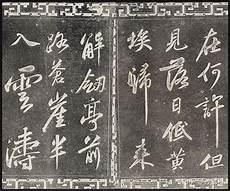 在何許但
見落日低黄
埃歸来
解劍亭前
路蒼崖半
入雲濤